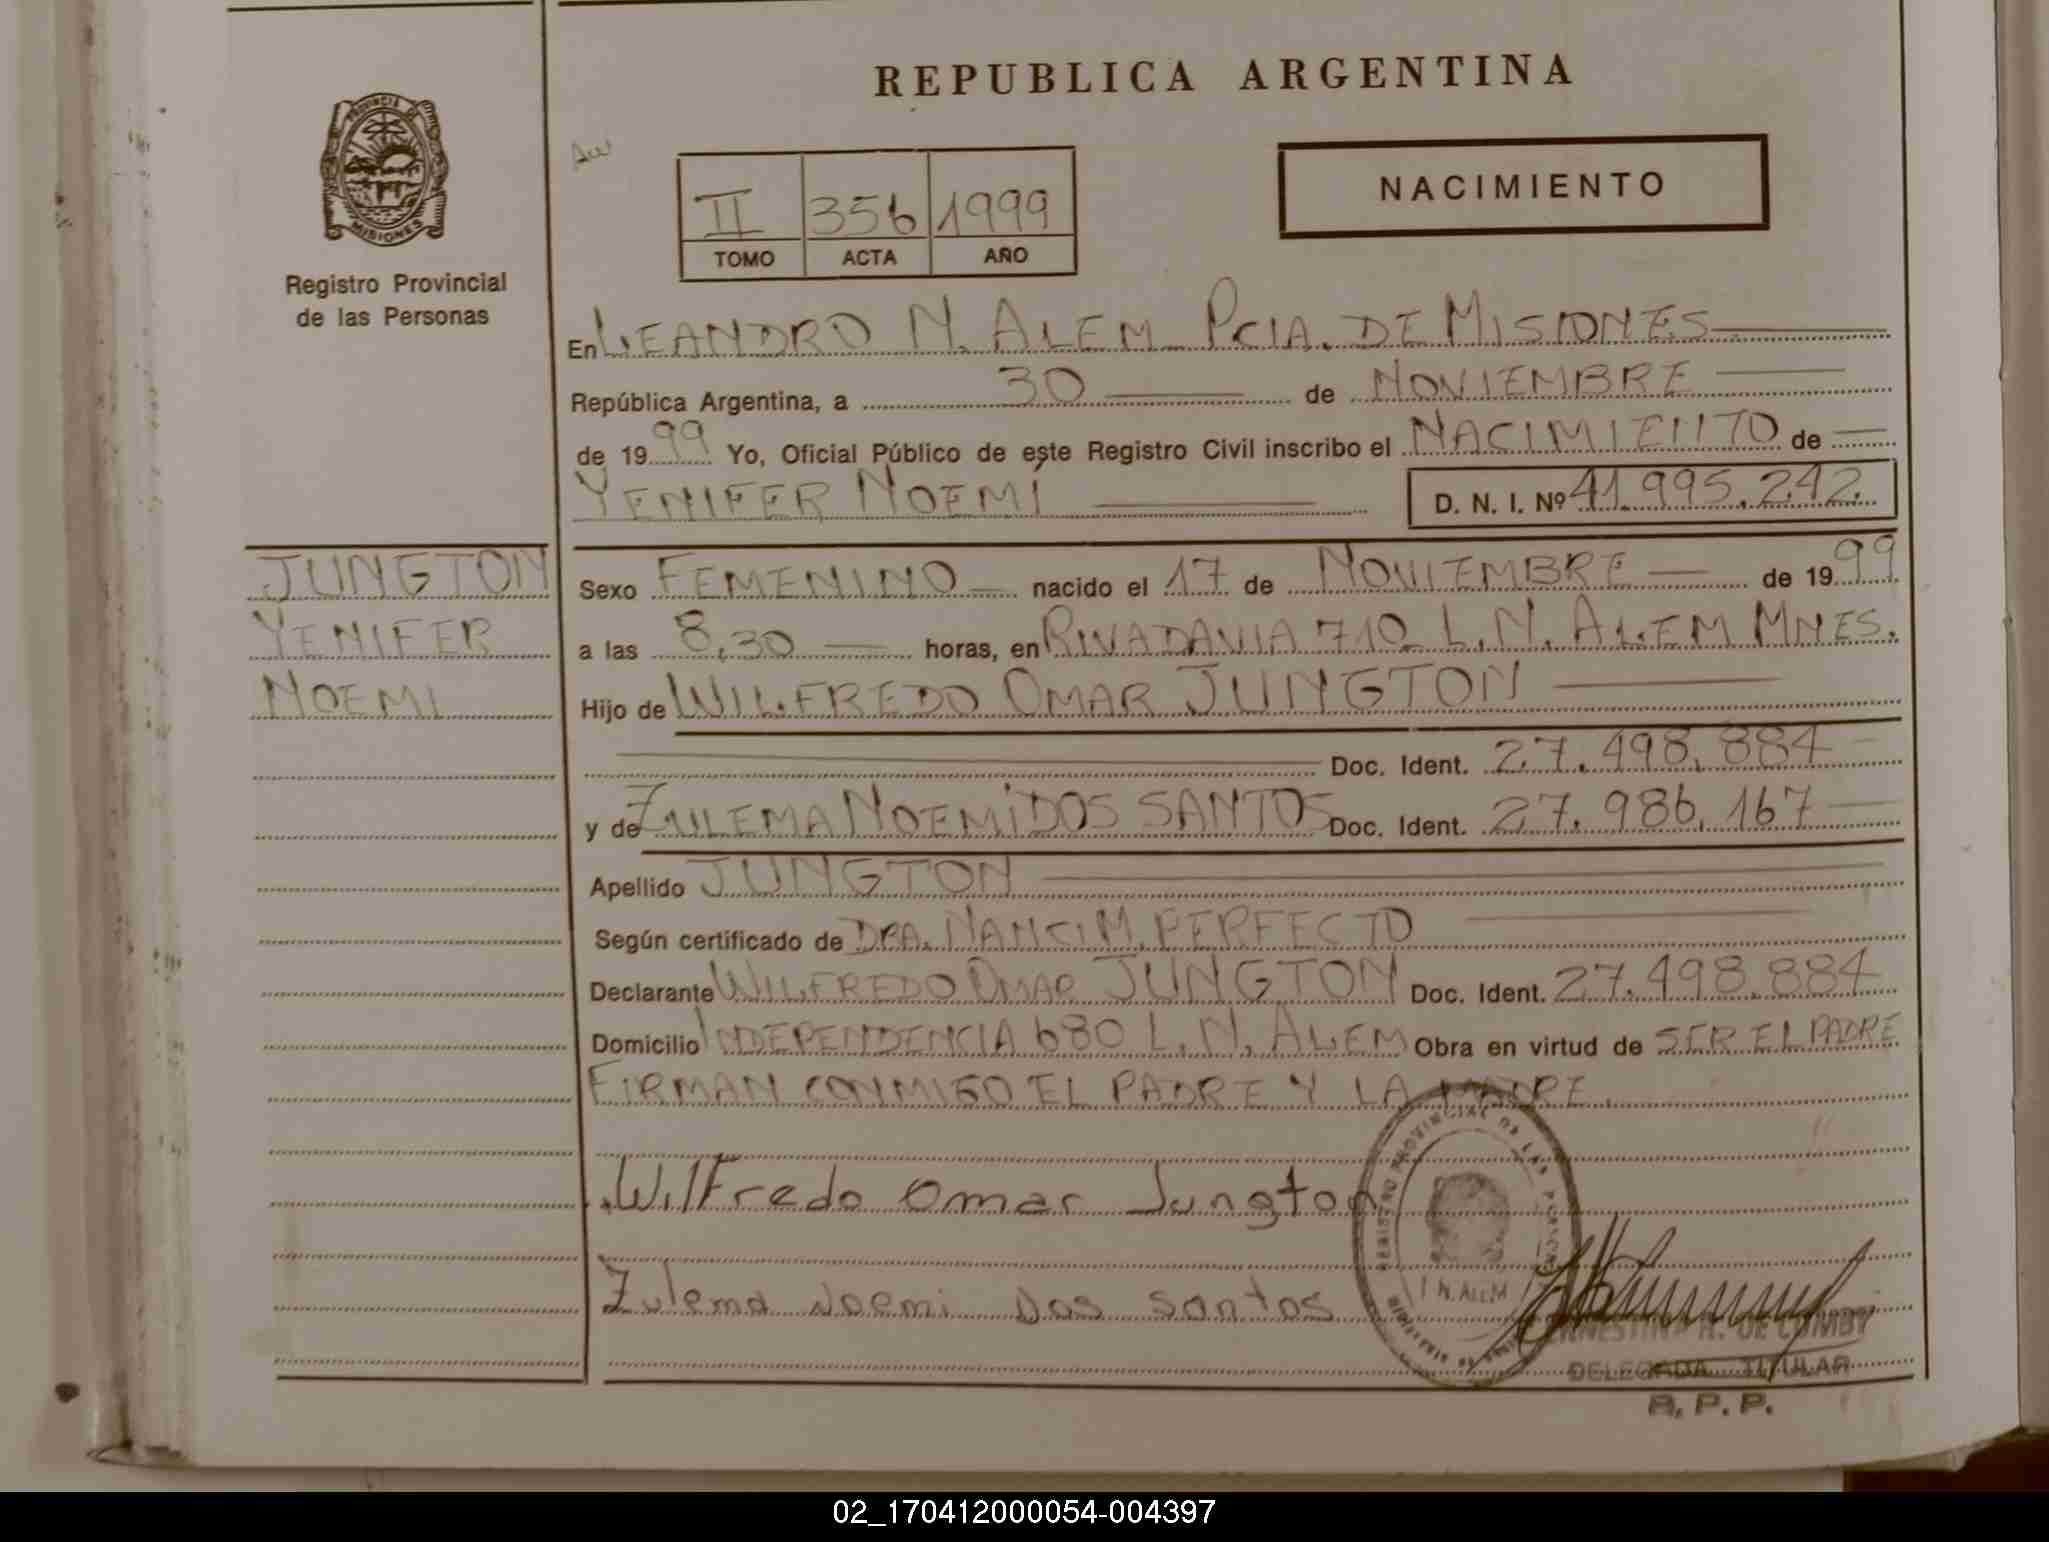 REPUBLICA ARGENTINA
PROVINCIA DE
MISIONES
Registro Provincial
de las Personas
NACIMIENTO
II 356 1999
TOMO ACTA AÑO
En LEANDRO N. ALEM PCIA. DE MISIONES
República Argentina, a 30 de NOVIEMBRE
de 1999 Yo, Oficial Público de este Registro Civil inscribo el NACIMIENTO de
YENIFER NOEMÍ D. N. I. Nº 41.995.242
JUNGTON
YENIFER
NOEMI
Sexo FEMENINO nacido el 17 de NOVIEMBRE de 1999
a las 8,30 horas, en RIVADAVIA 710 L. N. ALEM MNES.
Hijo de WILFREDO OMAR JUNGTON
Doc. Ident. 27.498.884
y de ZULEMA NOEMI DOS SANTOS Doc. Ident. 27.986.167
Apellido JUNGTON
Según certificado de DRA. NANCI M. PERFECTO
Declarante WILFREDO OMAR JUNGTON Doc. Ident. 27.498.884
Domicilio INDEPENDENCIA 680 L. N. ALEM Obra en virtud de SER EL PADRE
FIRMAN CONMIGO EL PADRE Y LA MADRE.
Wilfredo Omar Jungton
Zulema Noemi Dos Santos
REGISTRO PROVINCIAL DE LAS PERSONAS
N. ALEM
DE
DELEGADA TITULAR
R. P. P.
02_170412000054-004397